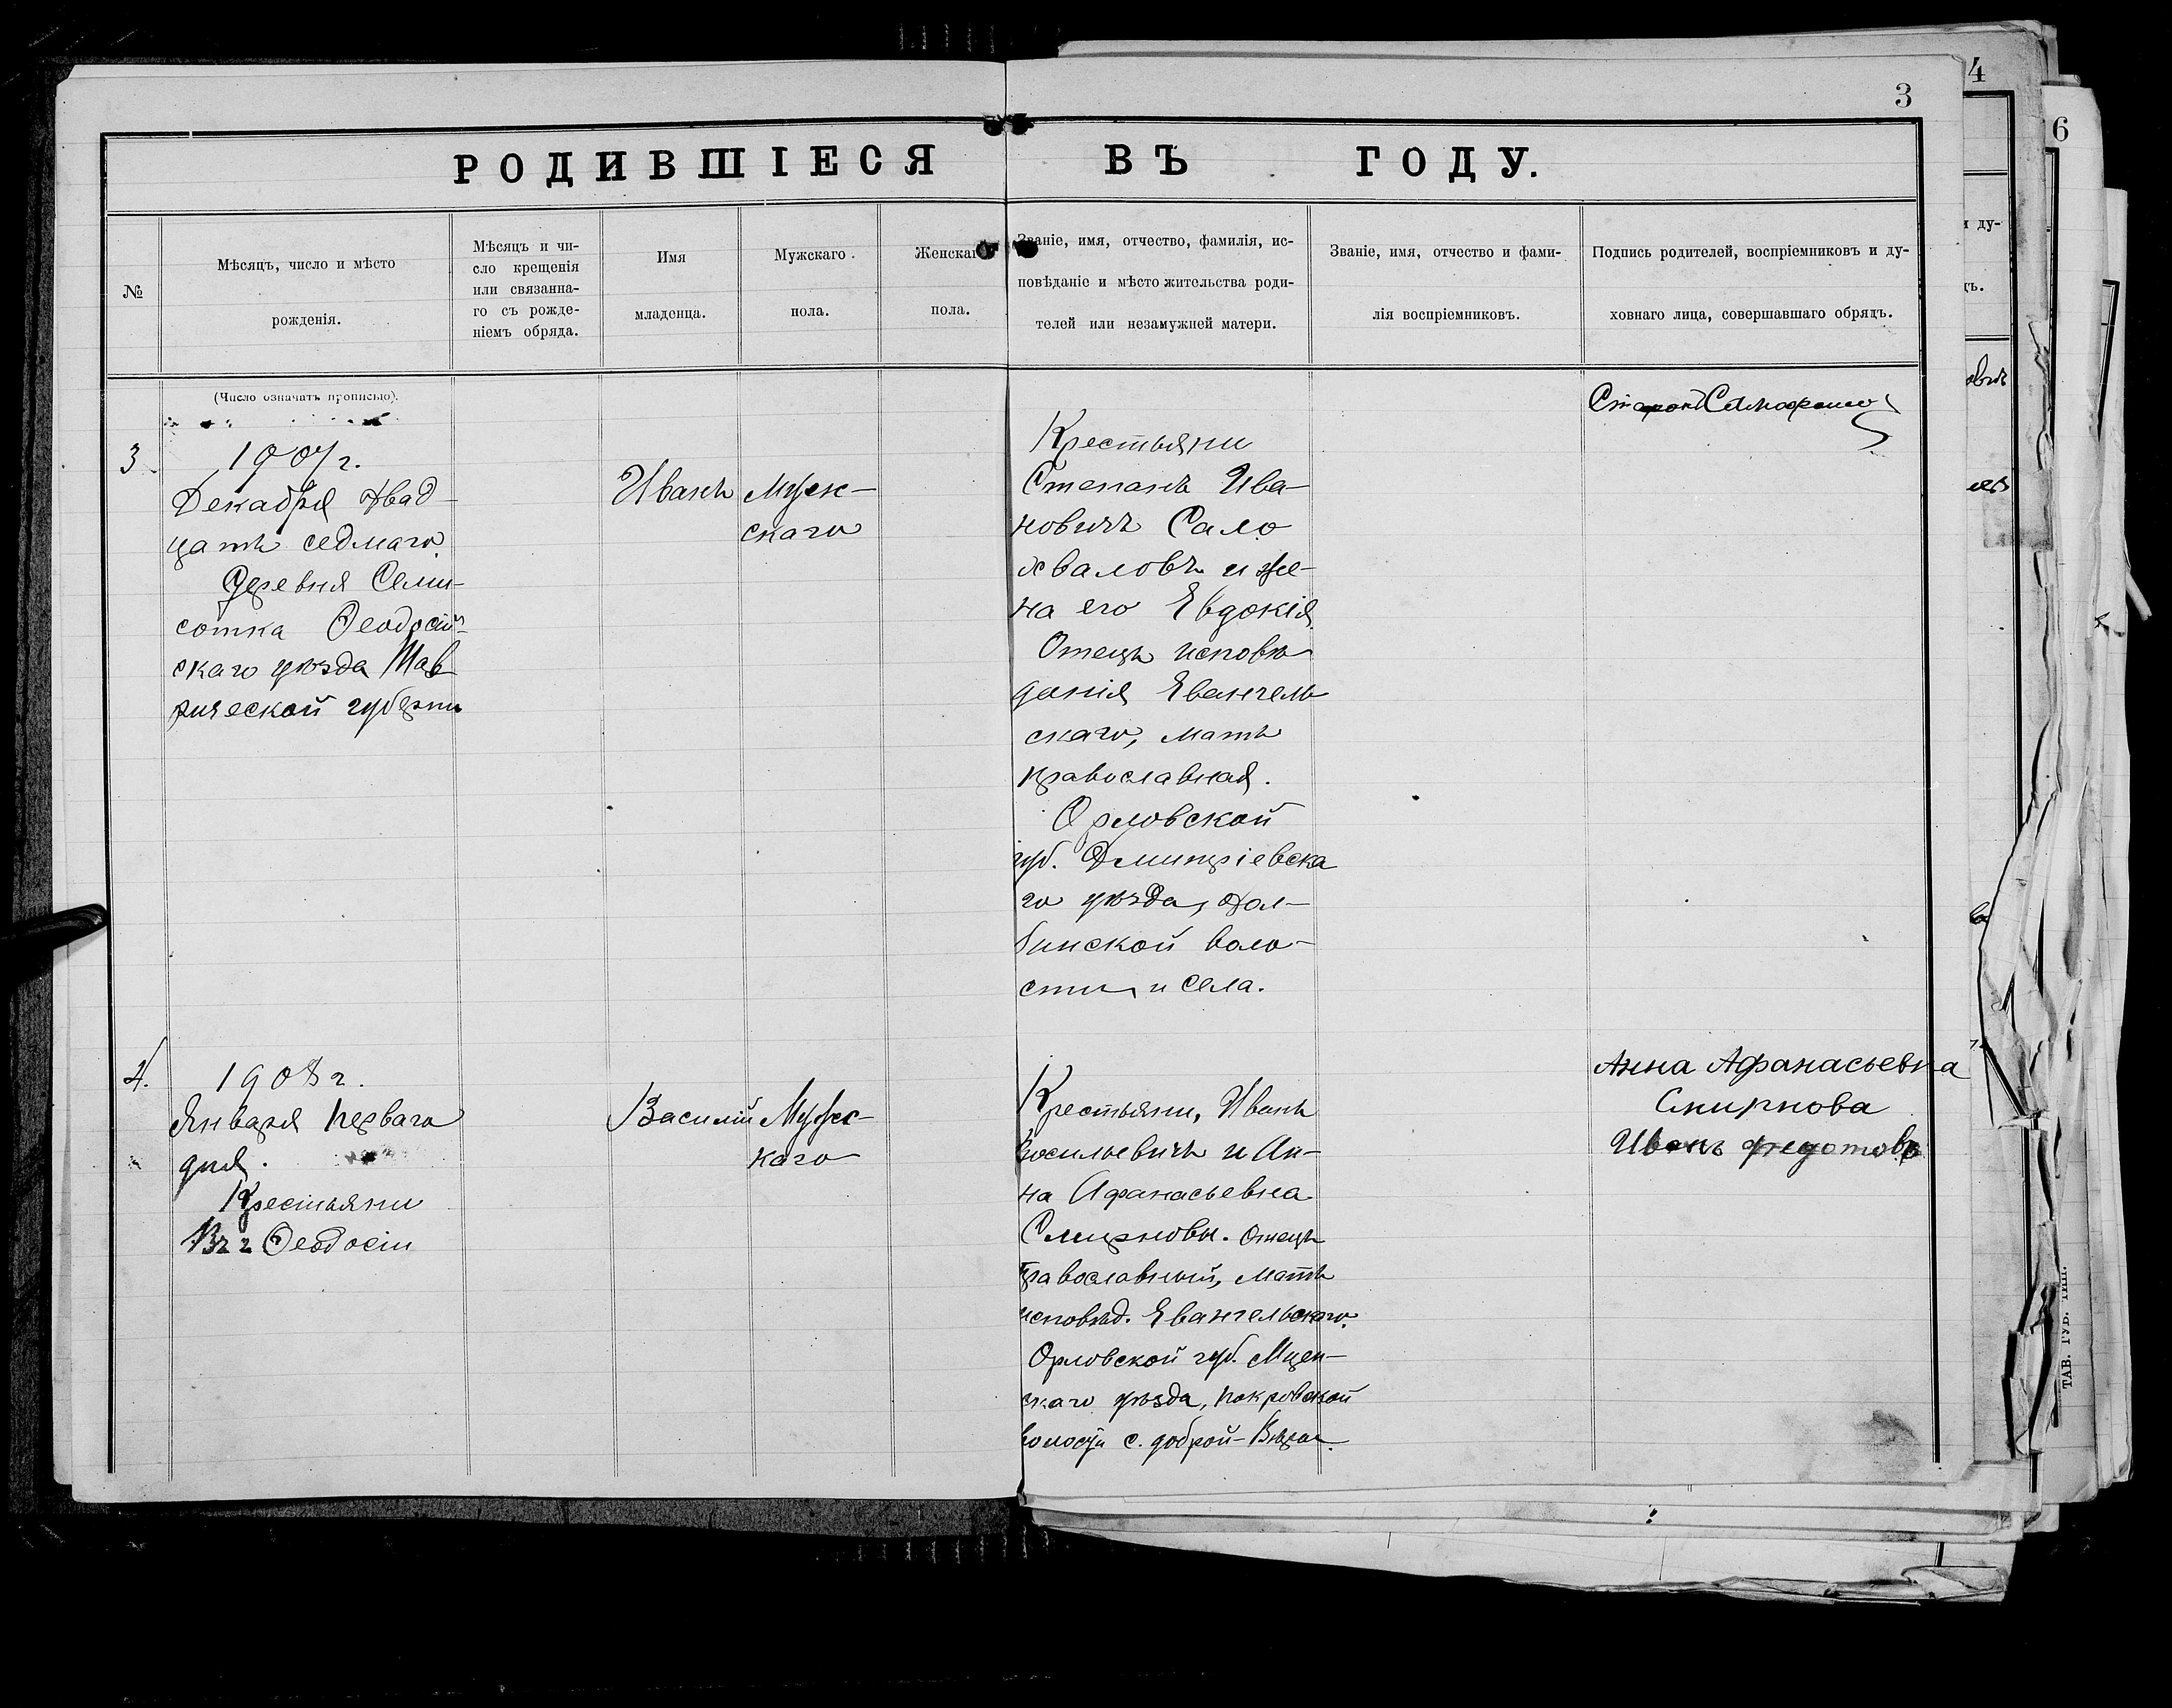 3
4
6
РОДИВШІЕСЯ ВЪ ГОДУ.
№
Мѣсяцъ, число и мѣсто
рожденія.
Мѣсяцъ и чи-
сло крещенія
или связанна-
го съ рожде-
ніемъ обряда.
Имя
младенца.
Мужскаго
пола.
Женскаго
пола.
Званіе, имя, отчество, фамилія, ис-
повѣданіе и мѣсто жительства роди-
телей или незамужней матери.
Званіе, имя, отчество и фами-
лія воспріемниковъ.
Подпись родителей, воспріемниковъ и ду-
ховнаго лица, совершавшаго обрядъ.
(Число означать прописью).
3
1907 г.
Декабря Двад-
цать седмаго.
Деревня Семи-
сотка Ѳеодосій-
скаго уѣзда Тав
рической губерніи
Иванъ
Муж-
скаго
Крестьяни
Степанъ Ива-
новичъ Сало
хваловъ и же-
на его Евдокія
Отецъ исповѣ
данія Евангель
скаго, мать
православная.
Орловской
губ. Дмитріевска
го уѣзда, Дол-
бинской воло-
сти и села.
4.
1908 г.
Января перваго
дня.
Крестьяни
Въ г Ѳеодосіи
Василій
Мужс-
каго
Крестьяни, Иванъ
Васильевичъ и Ан-
на Афанасьевна
Смирновы. Отецъ
православный, мать
исповѣд. Евангельскаго.
Орловской губ. Мцен-
скаго уѣзда, покровской
волости с. доброй-
Анна Афанасьевна
Смирнова
Иванъ Федотовъ
ТАВ. ГУБ. ТИП.